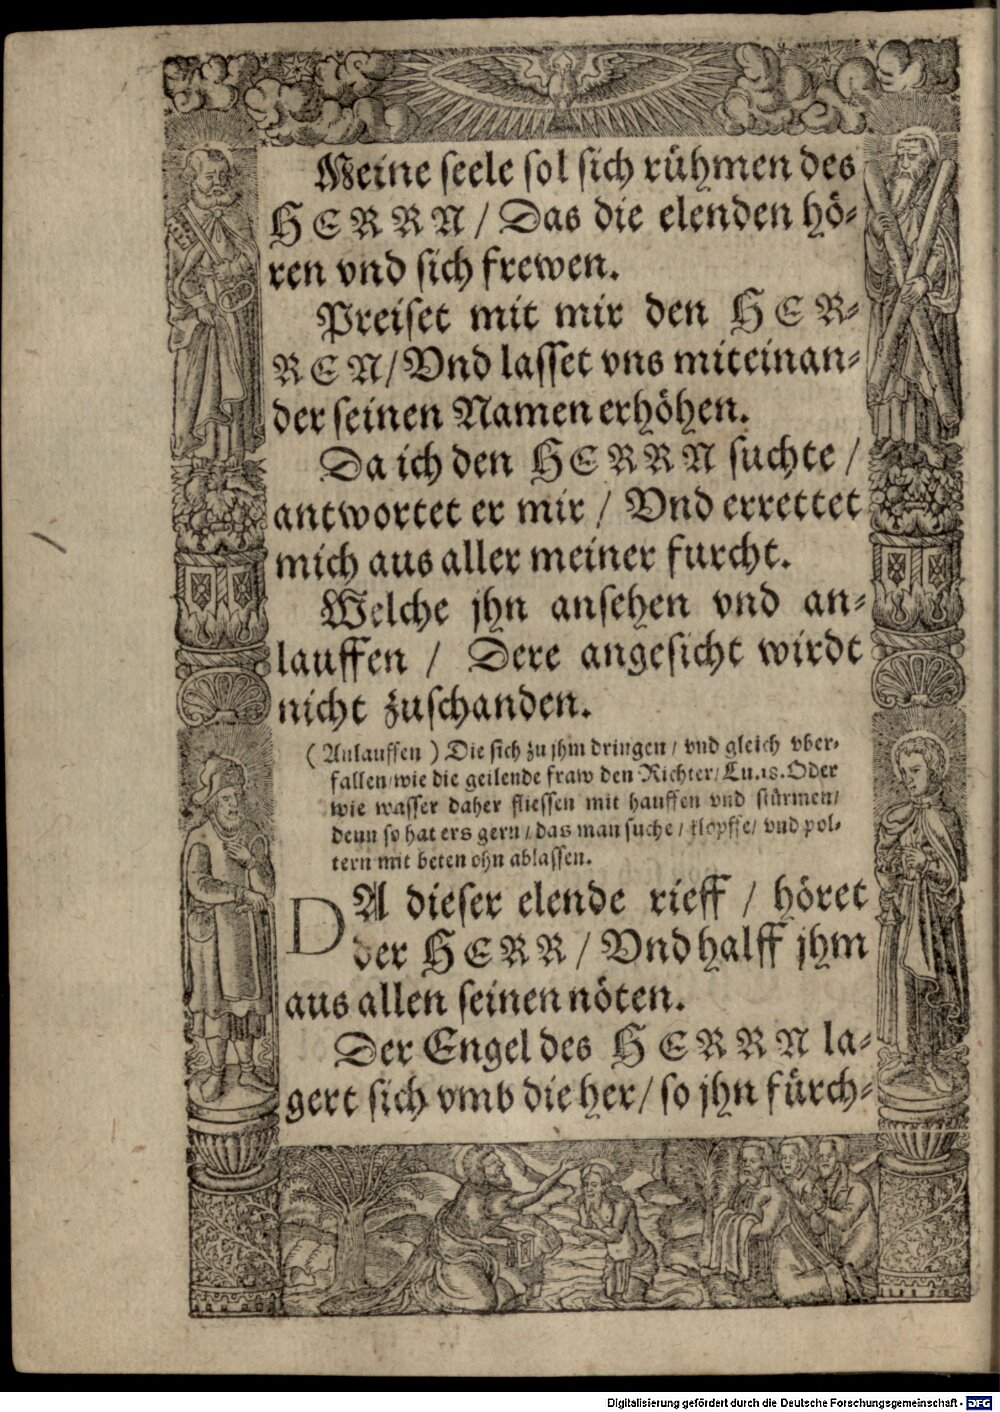 Meine seele sol sich rühmen des
HERRN / Das die elenden hö-
ren vnd sich frewen.
Preiset mit mir den HER-
REN / Vnd lasset vns miteinan-
der seinen Namen erhöhen.
Da ich den HERRN suchte /
antwortet er mir / Vnd errettet
mich aus aller meiner furcht.
Welche jhn ansehen vnd an-
lauffen / Dere angesicht wirdt
nicht zuschanden.
( Anlauffen ) Die sich zu jhm dringen / vnd gleich vber-
fallen / wie die geilende fraw den Richter / Lu. 18. Oder
wie wasser daher fliessen mit hauffen vnd stürmen /
denn so hat ers gern / das man suche / klopffe / vnd pol-
tern mit beten ohn ablassen.
DA dieser elende rieff / höret
der HERR / Vnd halff jhm
aus allen seinen nöten.
Der Engel des HERRN la-
gert sich vmb die her / so jhn fürch-
Digitalisierung gefördert durch die Deutsche Forschungsgemeinschaft - DFG